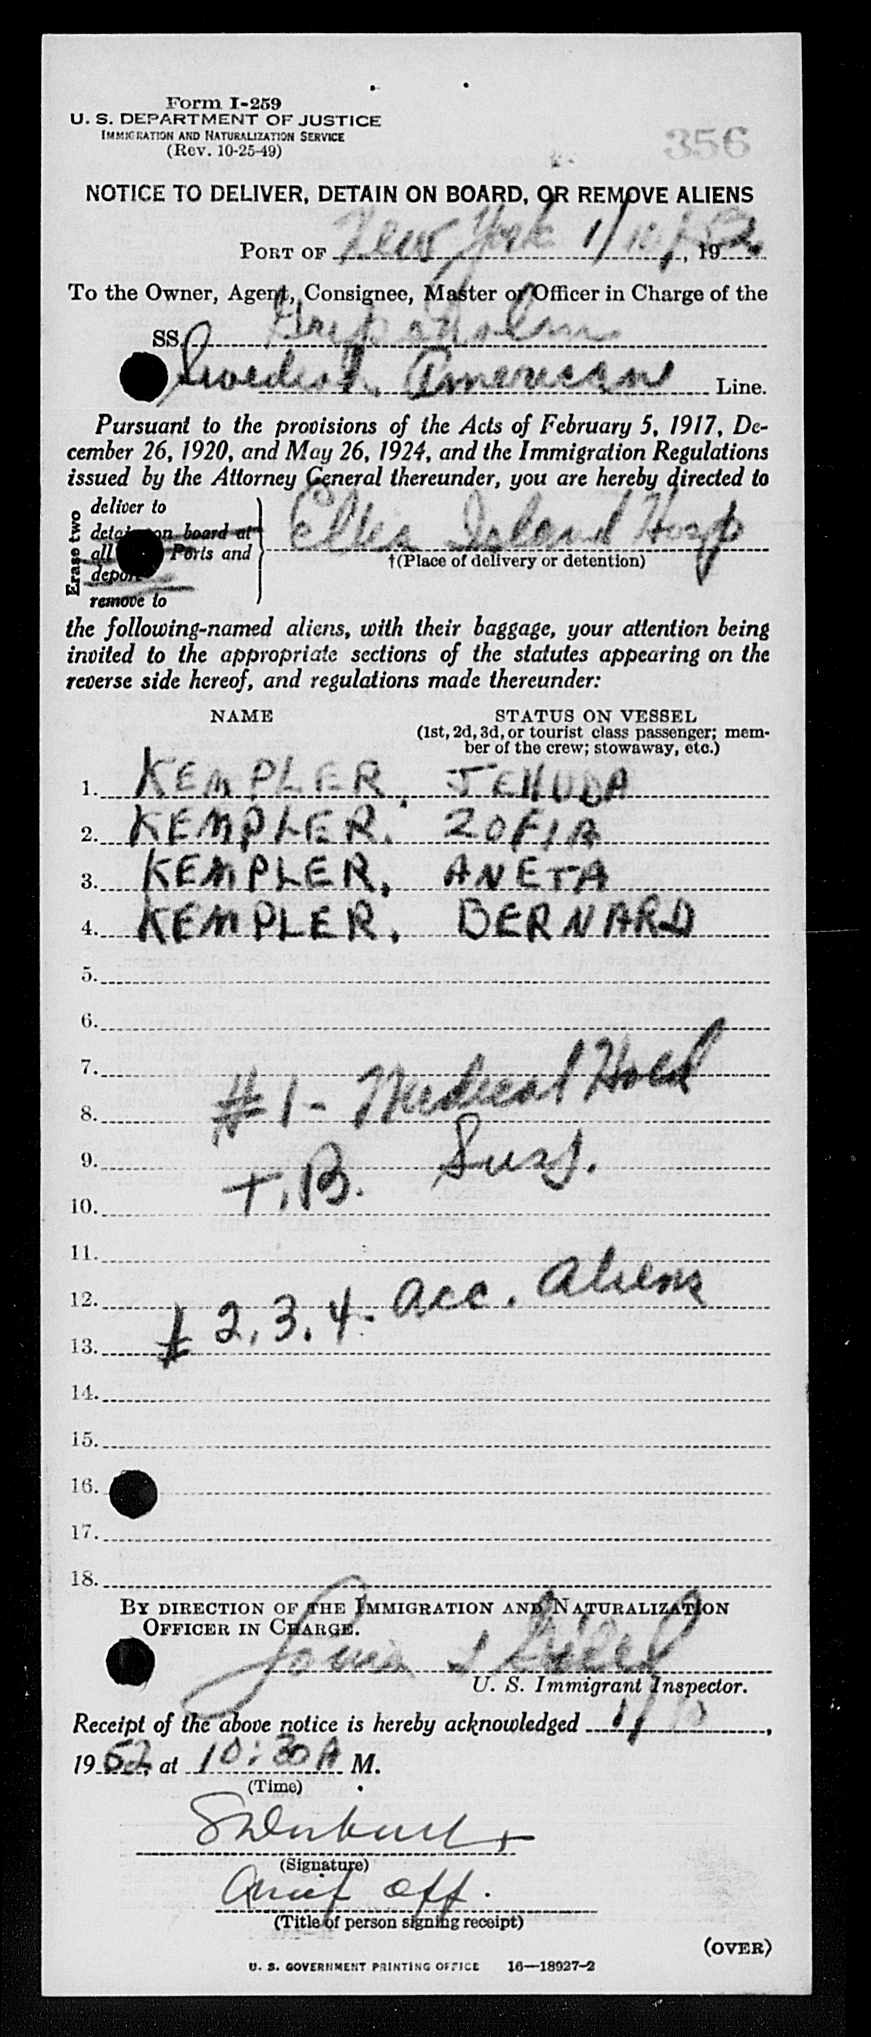 Form I-259
U. S. DEPARTMENT OF JUSTICE
IMMIGRATION AND NATURALIZATION SERVICE
(Rev. 10-25-49)
356
NOTICE TO DELIVER, DETAIN ON BOARD, OR REMOVE ALIENS
PORT OF New York 1/10, 1952
To the Owner, Agent, Consignee, Master or Officer in Charge of the
SS. Gripsholm
Swedish American Line.
Pursuant to the provisions of the Acts of February 5, 1917, De-
cember 26, 1920, and May 26, 1924, and the Immigration Regulations
issued by the Attorney General thereunder, you are hereby directed to
Erase two
deliver to
detain on board at
all Ports and
deport
remove to
Ellis Island Hosp
†(Place of delivery or detention)
the following-named aliens, with their baggage, your attention being
invited to the appropriate sections of the statutes appearing on the
reverse side hereof, and regulations made thereunder:
NAME STATUS ON VESSEL
(1st, 2d, 3d, or tourist class passenger; mem-
ber of the crew; stowaway, etc.)
1. KEMPLER, JEHUDA
2. KEMPLER, ZOFIA
3. KEMPLER, ANETA
4. KEMPLER, BERNARD
5.
6.
7. #1 - Medical Hold
8.
9. T.B. Susp.
10.
11.
12. # 2, 3, 4 - Acc. Aliens
13.
14.
15.
16.
17.
18.
BY DIRECTION OF THE IMMIGRATION AND NATURALIZATION
OFFICER IN CHARGE.
Louis
U. S. Immigrant Inspector.
Receipt of the above notice is hereby acknowledged 1/10,
1952, at 10:30 A M.
(Time)
(Signature)
Chief Off.
(Title of person signing receipt)
(OVER)
U. S. GOVERNMENT PRINTING OFFICE 16—18927-2